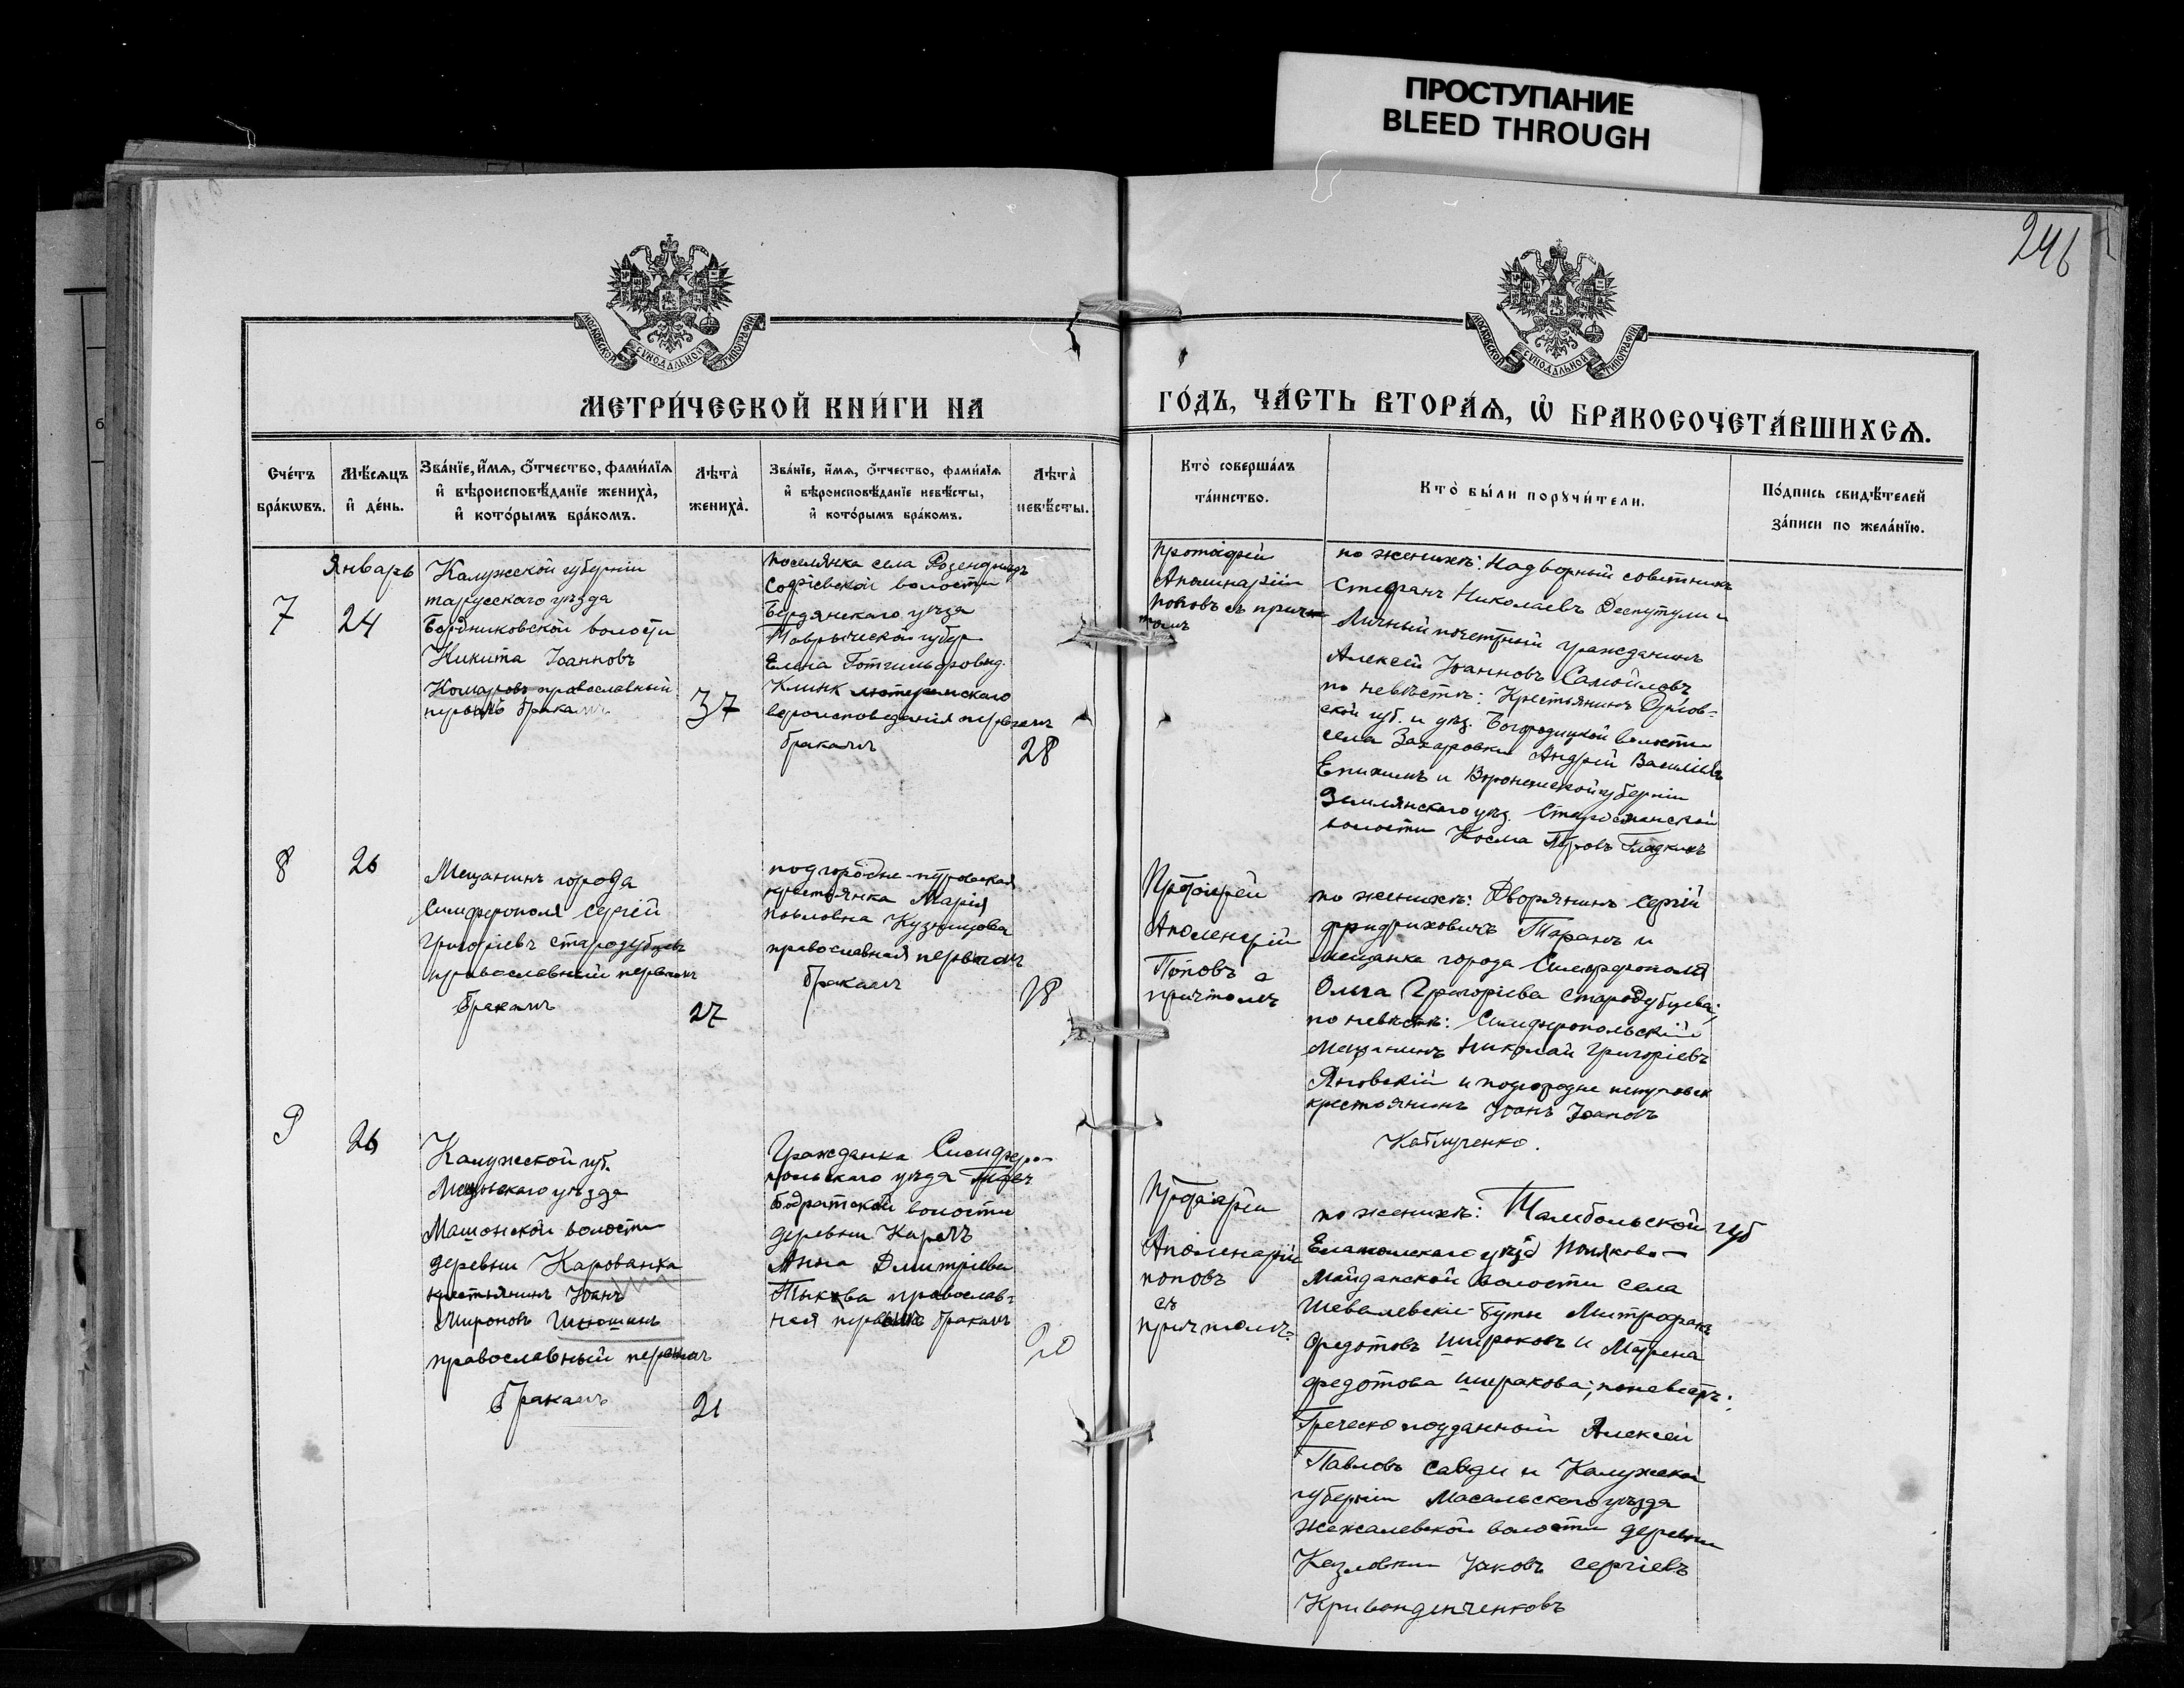 ПРОСТУПАНИЕ
BLEED THROUGH
246
МОСКОВСКОЙ СѴНОДАЛЬНОЙ ТИПОГРАФІИ
МОСКОВСКОЙ СѴНОДАЛЬНОЙ ТИПОГРАФІИ
МЕТРИ́ЧЕСКОЙ КНИ́ГИ НА
ГО́ДЪ, ЧА́СТЬ ВТОРА́Ѧ, Ѽ БРАКОСОЧЕТА́ВШИХСѦ.
Сче́тъ
бра́кѡвъ.
Мѣ́сѧцъ
и҆ де́нь.
Зва́нїе, и҆́мѧ, ѻ҆́тчество, фами́лїѧ
и҆ вѣроисповѣ́данїе жениха̀,
и҆ кото́рымъ бра́комъ.
Лѣ́та̀
жениха̀.
Зва́нїе, и҆́мѧ, ѻ҆́тчество, фами́лїѧ
и҆ вѣроисповѣ́данїе невѣ́сты,
и҆ кото́рымъ бра́комъ.
Лѣ́та̀
невѣ́сты.
Кто̀ соверша́лъ
та́инство.
Кто̀ бы́ли порꙋчи́тели.
По́дпись свидѣ́телей
за́писи по жела́нїю.
Январь
7
24
Калужской губерніи
тарусскаго уѣзда
волости
Никита Іоанновъ
Комаровъ православный
первымъ бракамъ
37
поселянка села Розенфельдъ
Софіевской волости
Бердянскаго уѣзда
Таврической губер
Елена
Клинк лютеранскаго
вероисповеданія первамъ
бракамъ
28
протоіерей
Аполинарій
Поповъ съ прич-
томъ
по женихѣ: Надворный советникъ
Стефанъ Николаевъ Деспутули и
Личный почетный гражданинъ
Алексей Іоанновъ Самойловъ
по невѣстѣ: Крестьянинъ Орлов-
ской губ. и уѣз. Богородицкой волости
села Захаровки Андрей Василіевъ
Епихинъ и Воронежской губерніи
Землянскаго уѣз. волости
волости Косма Гладкихъ
8
26
Мещанинъ города
Симферополя Сергій
Григоріевъ Стародубцевъ
православный первамъ
бракамъ
27
подгородне-петровская
крестьянка Марія
Павловна Кузнецова
православная первамъ
бракамъ
18
Протоіерей
Аполенарій
Поповъ с
притомъ
по женихѣ: Дворянинъ Сергій
Фридриховичъ Таранъ и
мещанка города Симферополя
Ольга Григоріева Стародубцева;
по невѣстѣ: Симферопольскій
Мещанинъ Николай Григоріевъ
Яновскій и подгородне петровск
крестьянинъ Іоанъ Іоановъ
Каблученко.
9
26
Калужской губ.
уѣзда
Машонской волости
деревни Карованка
крестьянинъ Іоанъ
Мироновъ
православный первамъ
бракамъ
21
Гражданка Симферо-
польскаго уѣзда
Бодратской волости
деревни
Анна Дмитріева
Тыкова православ-
ная первымъ бракамъ
20
Протоіерей
Аполенарій
поповъ
съ
притомъ
по женихѣ: Тамбольской губ
Елатомскаго уѣзд Поляково-
Майданской волости села
Шевалевскіе-Буты Митрофанъ
Федотовъ Шираковъ и Матрена
Федотова Ширакова; по невѣстѣ:
Греческо поданной Алексей
Павловъ Савди и Калужской
губерніи Масальскаго уѣзда
волости деревни
Казловки Іаковъ Сергіевъ